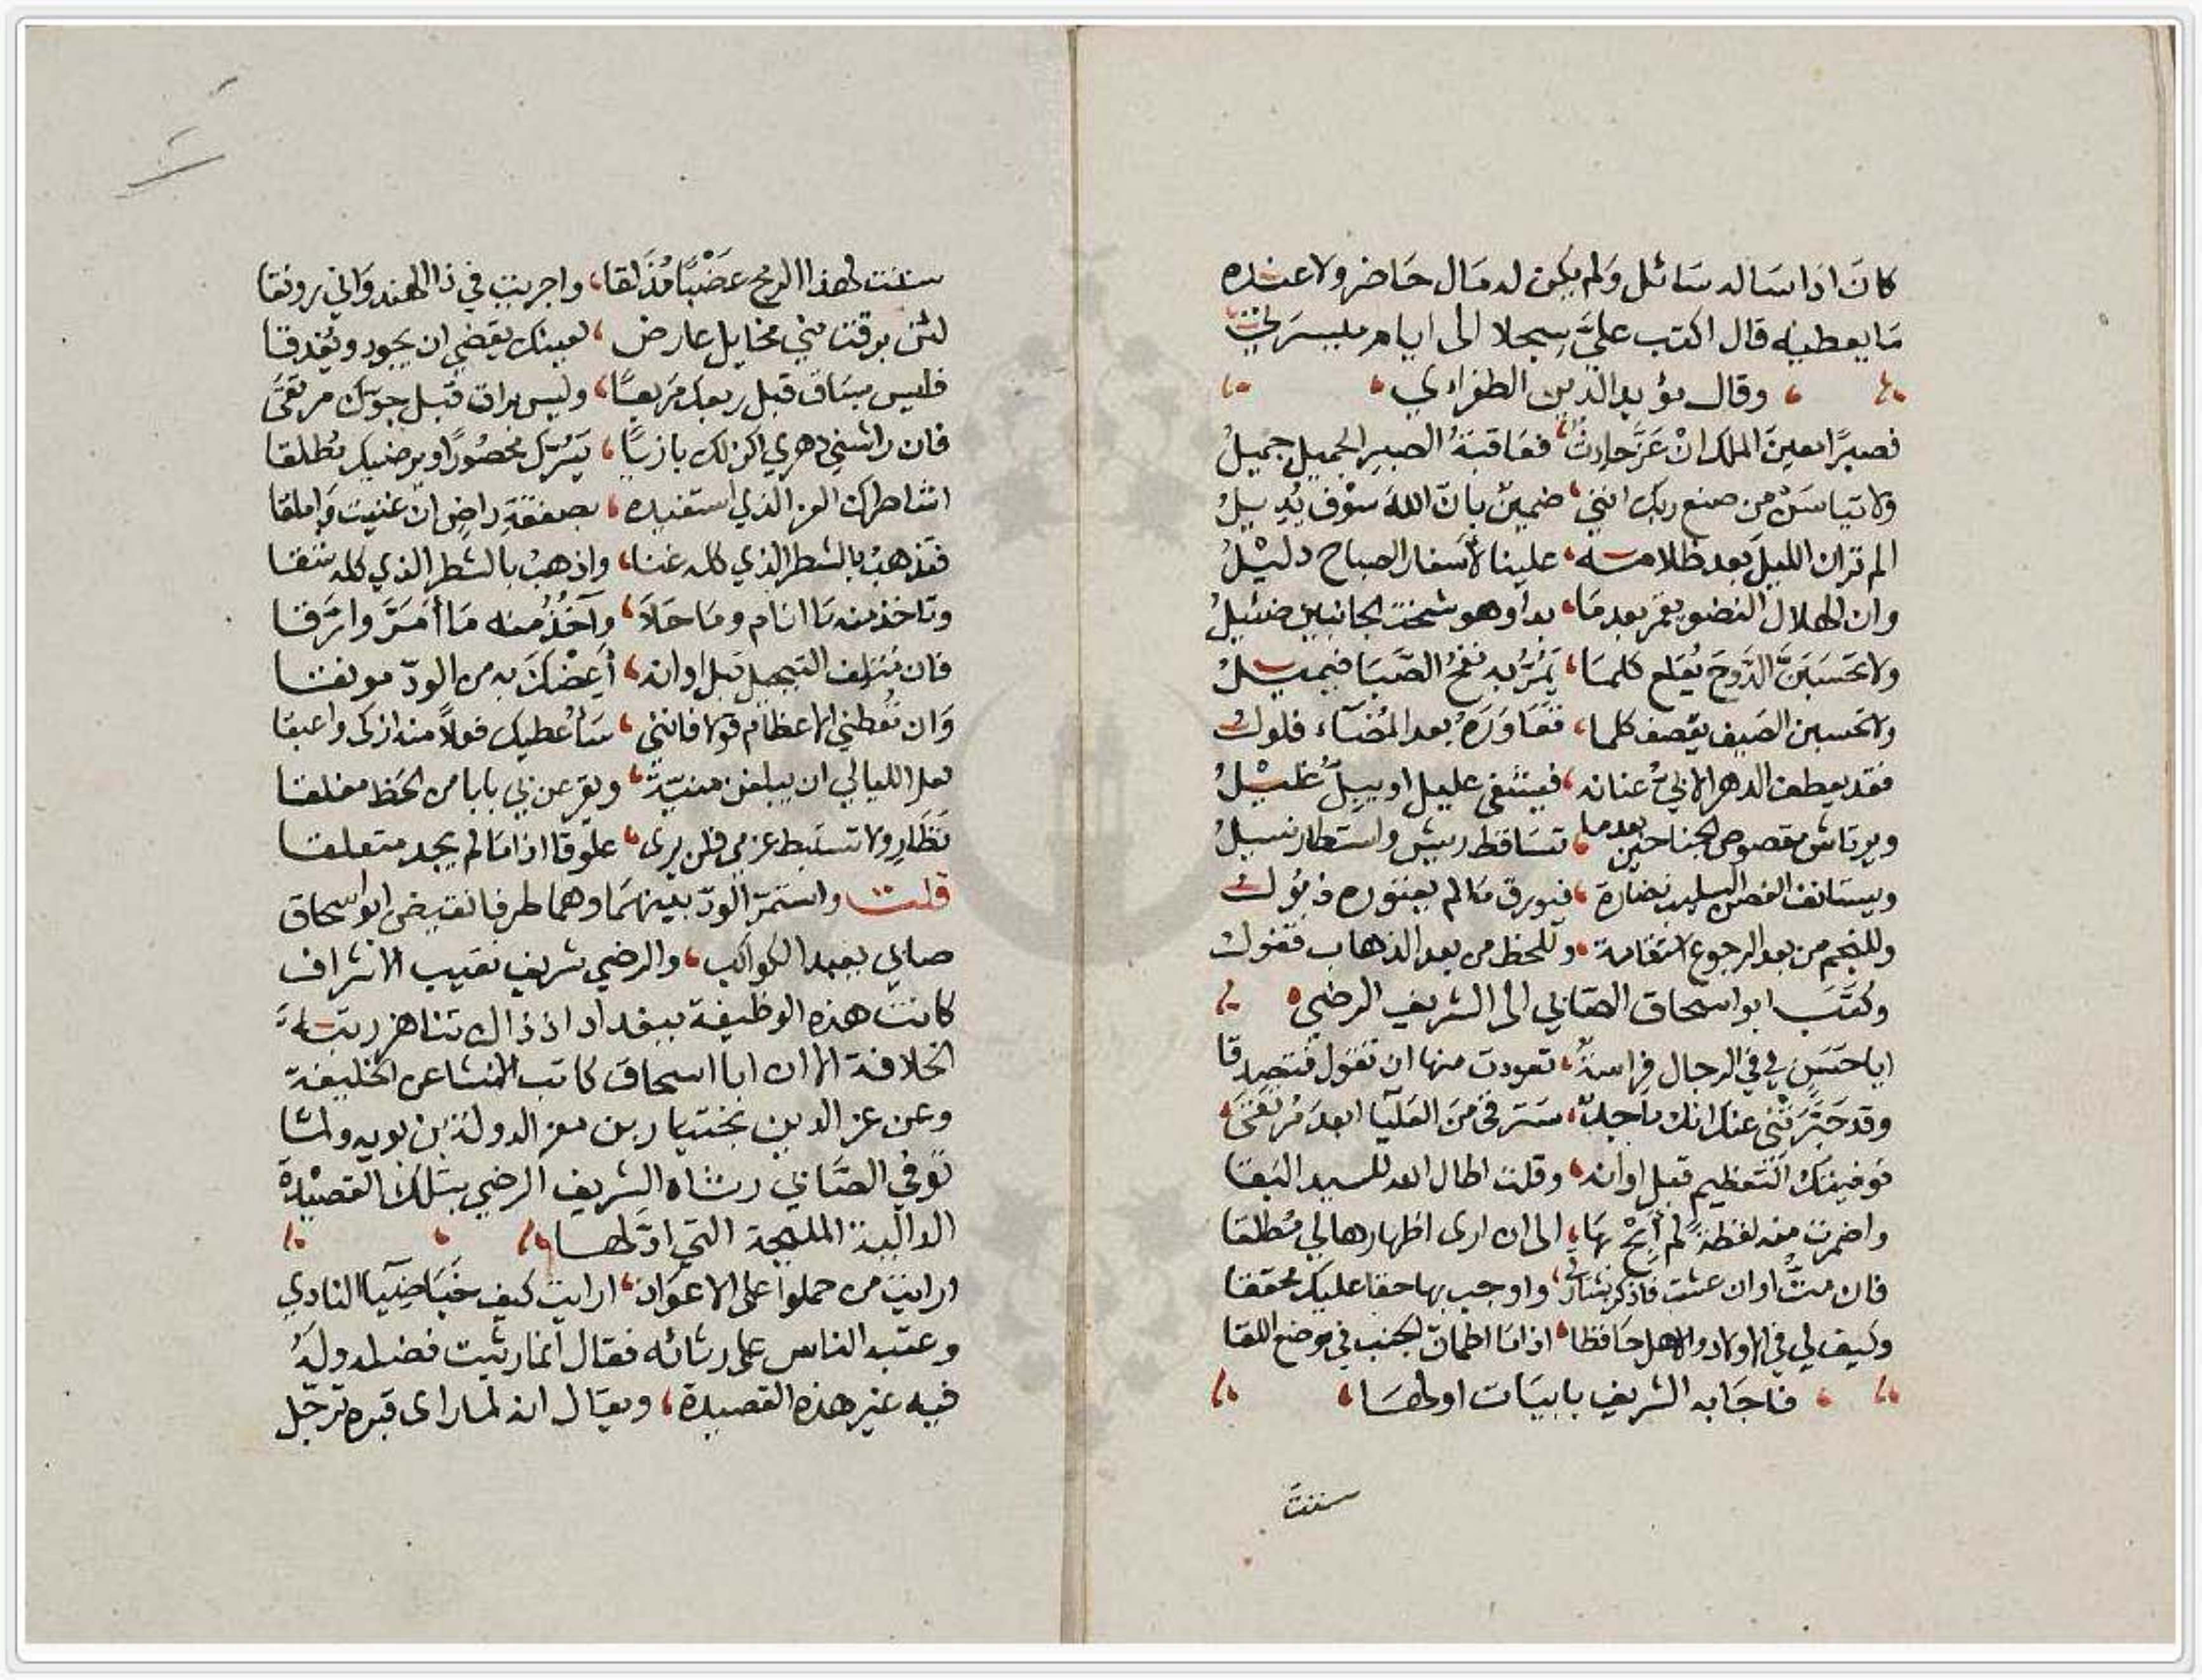 كان اذا ساله سائل ولم يكن له مال حاضر ولا عنده
ما يعطيه قال اكتب عليَّ سجلا الى ايام ميسرتي
وقال مؤيد الدين الطغرائي
فصبرًا معينَ الملك انْ عَزَّ حادثٌ، فعَاقبةُ الصبرِ الجميلِ جميلُ
ولا تياسَنْ من صنع ربك انني، ضمينٌ بانّ اللهَ سوْف يُديلُ
الم تر ان الليلَ بعد ظلامه، علينا لاسفار الصباح دليْلُ
وان الهلال النضو يقمر بعد ما، بدا وهو شخت الجانبين ضئيلُ
ولا تحسَبَنَّ الدَّوحَ يُقلع كلما، يَمُرُّ به نفحُ الصَّبَا فيميلُ
ولا تحسبن السيف يقصف كلما، تعَاوَرَهُ بعد المضَاء فلول
فقد يعطف الدهر الابيُّ عنانه، فيشتفى عليل او يبلّ غليْلُ
ويرتاش مقصوص الجناحين بعد ما، تساقط ريش واستطار نسيلُ
ويستانف الغصن السليب نضارة، فيورق ما لم يعتوره ذبول
وللنجم من بعد الرجوع استقامة، وللحظ من بعد الذهاب قفول
وكتَبَ ابو اسحاق الصابي الى الشريف الرضي
ابا حسَنٍ لي في الرجال فراسة، تعودت منها ان تقول فتصدقا
وقد خبَّرَتْني عنك انك ماجد، سترقى من العليا ابعدَ مُرتقى
فوفيتك التعظيم قبل اوانه، وقلت اطال الله للسيد البقا
واضمرت منه لفظةً لم أبُحْ بهَا، الى ان ارى اظهارها لي مُطلقا
فان متُّ او ان عشت فاذكر بشارتي، واوجب بها حقا عليك محققا
وكيف لي في الاولاد والاهل حافظا، اذا ما اطمان الجنب في موضع اللقا
فاجابه الشريف بابيات اولها
سننت
سننت لهذا الرمح عَضْبًا مُذَلّقا، واجريت في ذا الهندواني رونقا
لئن برقت مني مخايل عارض، لعينك يقضي ان يجود ويُغدقا
فليس بساق قبل ربعك مربعًا، وليس براق قبل جوّك مرتقى
فان راشني دهري اكن لك بازيًا، يَسُرّك محصُورًا ويرضيك مُطلقا
اشاطرك العز الذي استفيده، بصفقةِ راضٍ ان غنيت واملقا
فتذهبُ بالشطر الذي كله غنا، واذهبُ بالشطر الذي كله شقا
وتاخذ منه ما انام وما حَلاَ، وآخُذُ منه مَا أمَرَّ وارّقا
فان تسلف التبجيل قبل اوانه، أعضك به من الودّ مونقا
وَان تُعطني الاعظام قولا فانني، ساُعطيك فولاً منه ازكى واعبقا
لعل الليالي ان يبلغن منيّة، ويقرعن لي بابا من الحَظ مغلقا
نَظَارِ ولا تستبط عزمي فلن يرى، علوقا اذا ما لم يجد متعلقا
قلت واستمرّ الود بينهما وهما طرفا نقيض ابو اسحاق
صابي يعبد الكواكب، والرضي شريف نقيب الاشراف
كانت هذه الوظيفة ببغداد اذ ذاك تناهز رتبة
الخلافة الا ان ابا اسحاق كاتب الانشا عن الخليفة
وعن عز الدين بختيار بن معز الدولة بن بويه ولما
توفي الصَّابي رثاه الشريف الرضي بتلك القصيدة
الدالية المليحة التي اوَّلها
ارايت من حملوا على الاعوَاد، ارايت كيف خَبَا ضِيَا النادي
وعتبه الناس على رثائه فقال انما رثيت فضله وله
فيه غير هذه القصيدة، ويقال انه لما راى قبره ترجّل